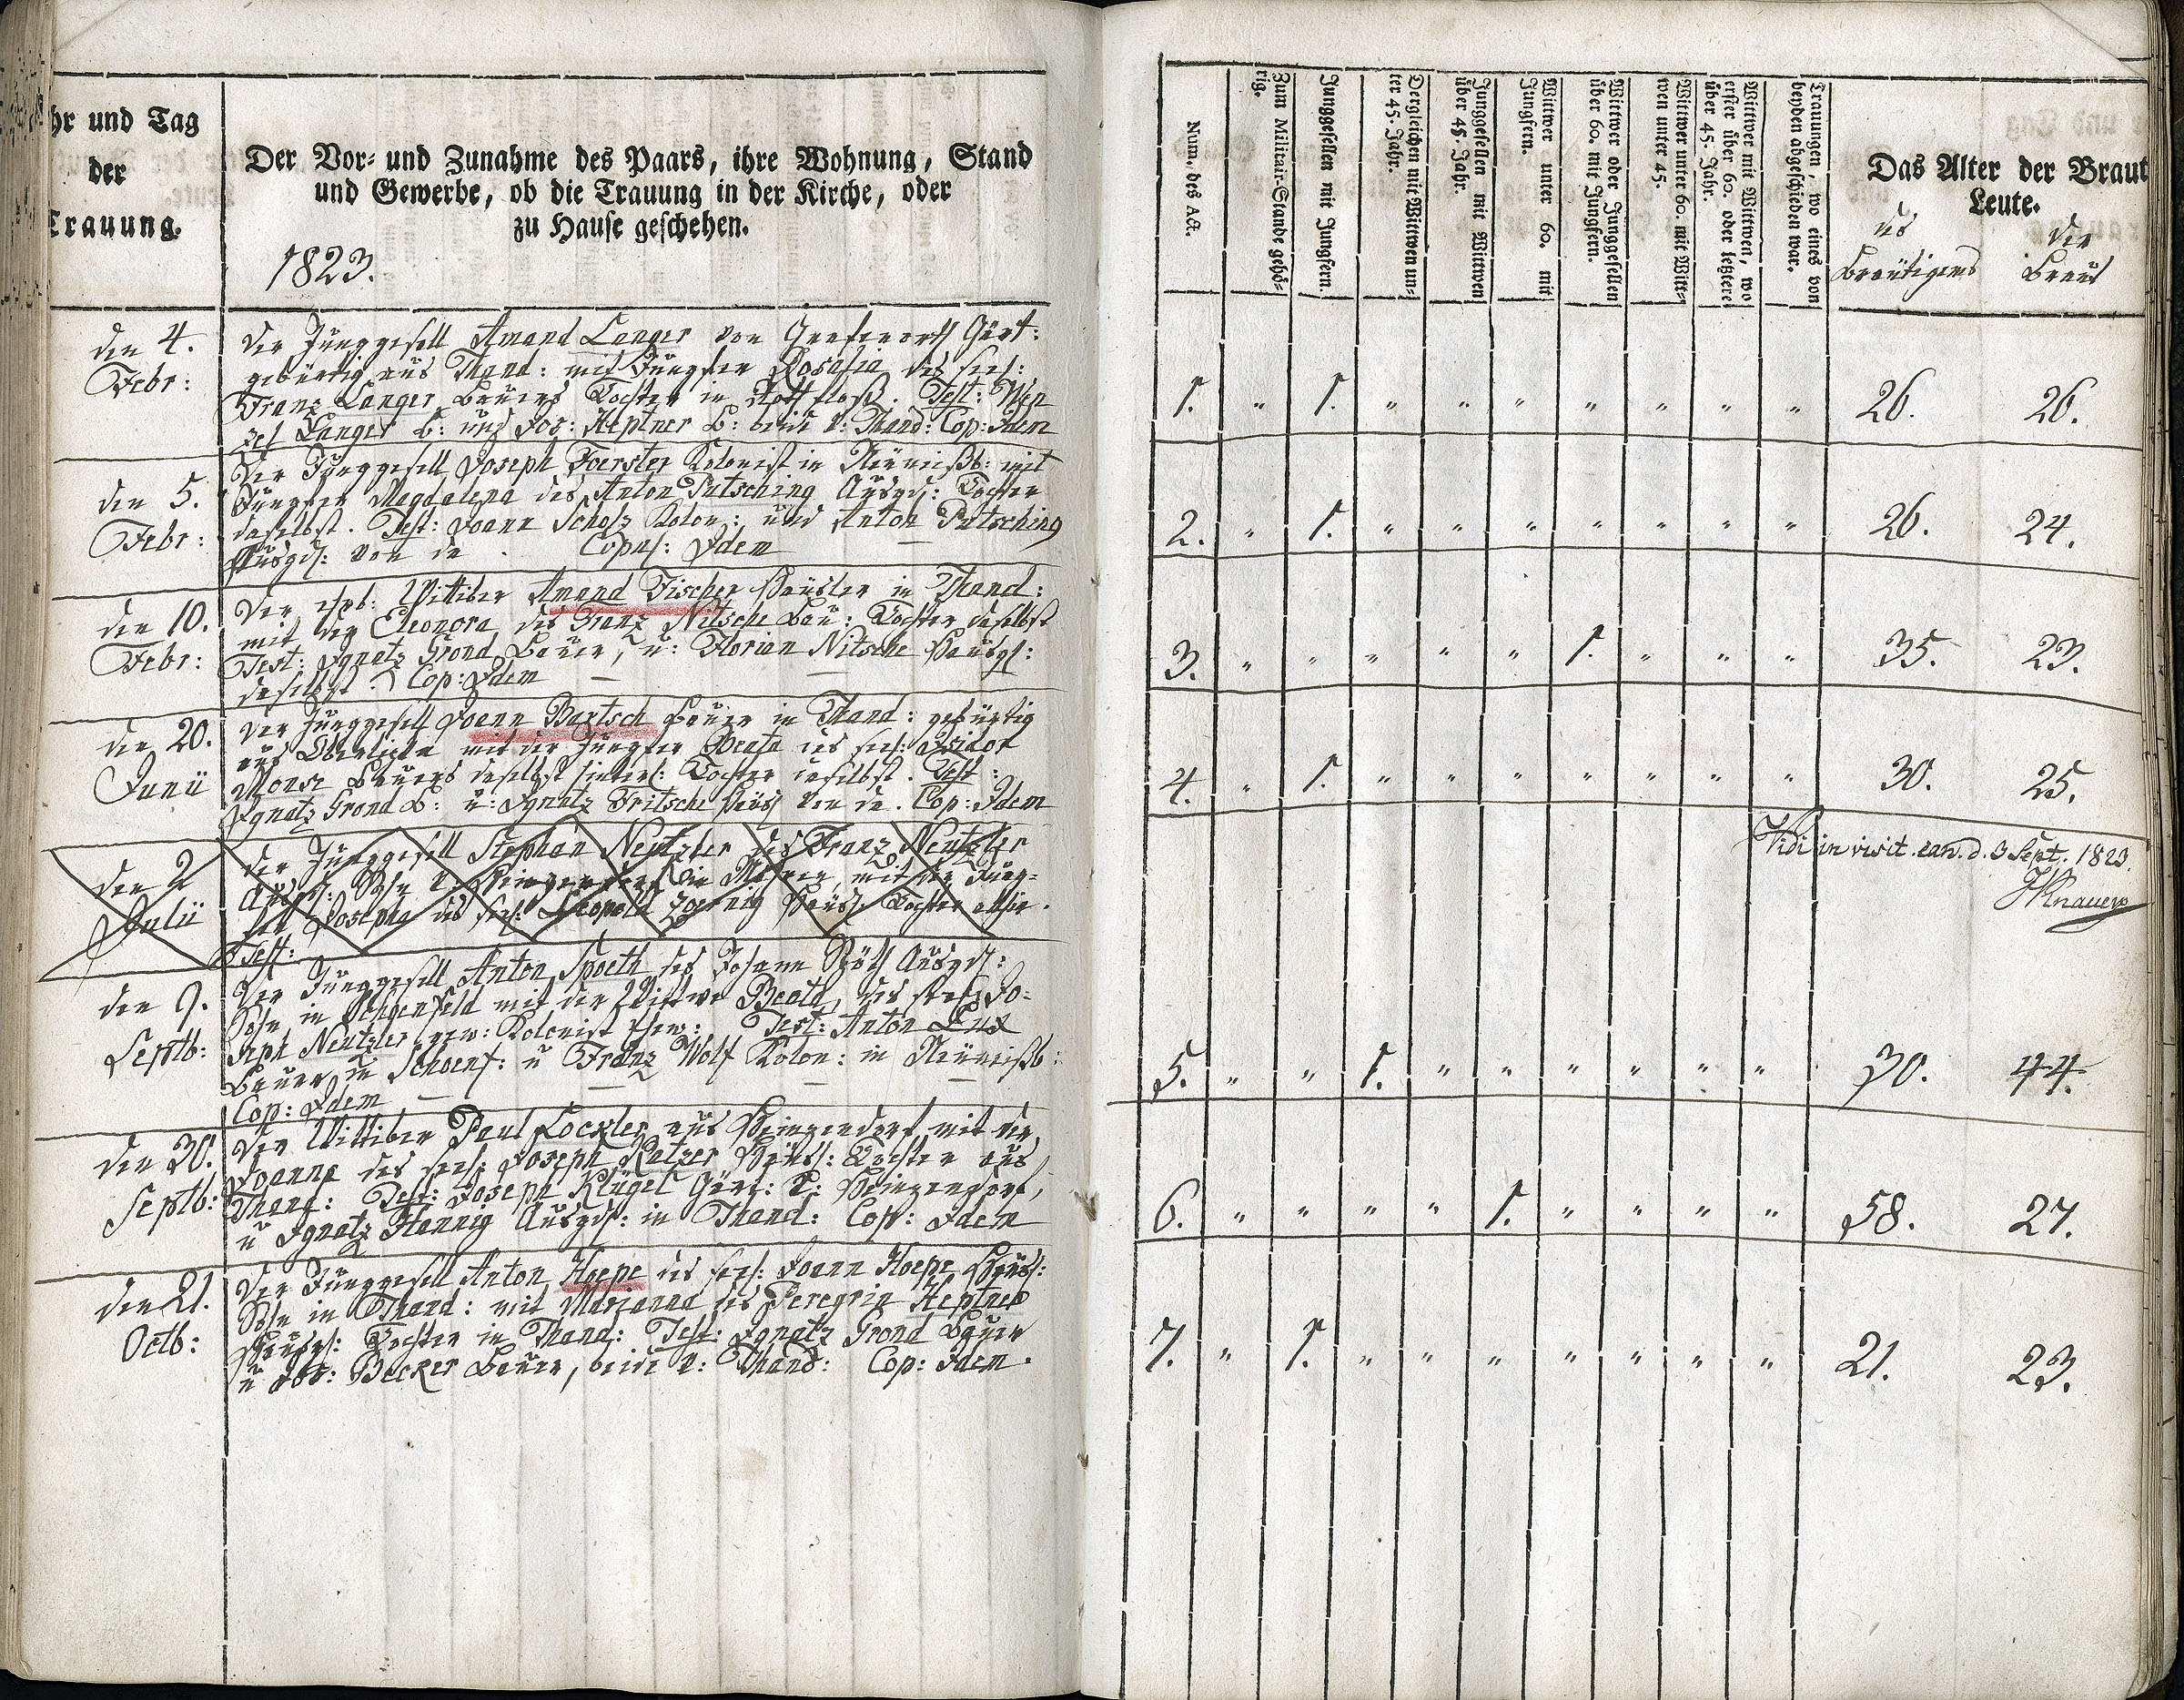 hr und Tag
der
Trauung.
Der Vor- und Zunahme des Paars, ihre Wohnung, Stand
und Gewerbe, ob die Trauung in der Kirche, oder
zu Hause geschehen.
1823.
den 4.
Febr:
Der Junggesell Amand Langer von Grafenorth Gärt:
gebürtig aus Thand: mit Jungfer Rosalia des seel:
Franz Langer Bauers Tochter in Test: Wen
zel Langer B: und Jos: Heptner B: beide v: Thand: Cop: Idem
den 5.
Febr:
Der Junggesell Joseph Foerster Kolonist in Neüweißb: mit
Jungfer Magdalena des Anton Putsching Ausged: Tochter
daselbst. Test: Joann Scholz Kolon: und Anton Putsching
Ausged: von da. Copul: Idem
den 10.
Febr:
Der Wittiber Amand Fischer Häusler in Thand:
mit der Eleonora des Franz Nitsche Bau: Tochter daselbst
Test: Ignatz Grond Bauer, u: Florian Nitsche
daselbst. Cop: Idem
den 20.
Junii
Der Junggesell Joann Bartsch Bauer in Thand: gebürtig
aus mit der Jungfer Beata des seel: Isidor
Monse Bauers daselbst hinterl: Tochter daselbst. Test:
Ignatz Grond B: u: Ignatz Fritsche Häusl von da. Cop: Idem
den 2
Julii
Der Junggesell Stephan Neutzler des Franz Neutzler
Sohn v. in Mähren, mit der Jung-
fer Josepha des seel: Leopold Häusl: Tochter
Test:
den 9.
Septb:
Der Junggesell Anton Spoeth des Johann Späth Ausged:
Sohn in Schoenfeld mit der Wittwe Beata, des seel: Jo-
seph Neutzler gew: Kolonist Test: Anton
Bauer in Schoenf: u Franz Wolf Kolon: in Neüweißb:
Cop: Idem
den 30.
Septb:
Der Wittiber Paul Lockler aus Heinzendorf mit der
Joanna des seel: Joseph Ratzer Häusl: Tochter aus
Thand: Test: Joseph Klügel Gärt: v: Heinzendorf,
u Ignatz Hannig Ausged: in Thand: Cop: Idem
den 21.
Octb:
Der Junggesell Anton Hoepe des seel: Joann Hoepe Häusl:
Sohn in Thand: mit Marianna des Peregrin Heptner
Tochter in Thand: Test: Ignatz Grond Bauer
u Jos: Becker Bauer, beide v: Thand: Cop: Idem.
Num. des Act.
Zum Militair-Stande gehö-
rig.
Junggesellen mit Jungfern.
Dergleichen mit Wittwen un-
ter 45. Jahr.
Junggesellen mit Wittwen
über 45. Jahr.
Wittwer unter 60. mit
Jungfern.
Wittwer oder Junggesellen
über 60. mit Jungfern.
Wittwer unter 60. mit Witt-
wen unter 45.
Wittwer mit Wittwen, wo
erster über 60. oder letztere
über 45. Jahr.
Trauungen, wo eines von
beyden abgeschieden war.
Das Alter der Braut
Leute.
des
Bräutigams
der
Braut
1. " 1. " " " " " " " 26. 26.
2. " 1. " " " " " " " 26. 24.
3. " " " " " 1. " " " 35. 23.
4. " 1. " " " " " " " 30. 25.
Vidi in visit. can. d. 3 Sept. 1823.
JKnauer
5. " " 1. " " " " " " 30. 44.
6. " " " " 1. " " " " 58. 27.
7. " 1. " " " " " " " 21. 23.